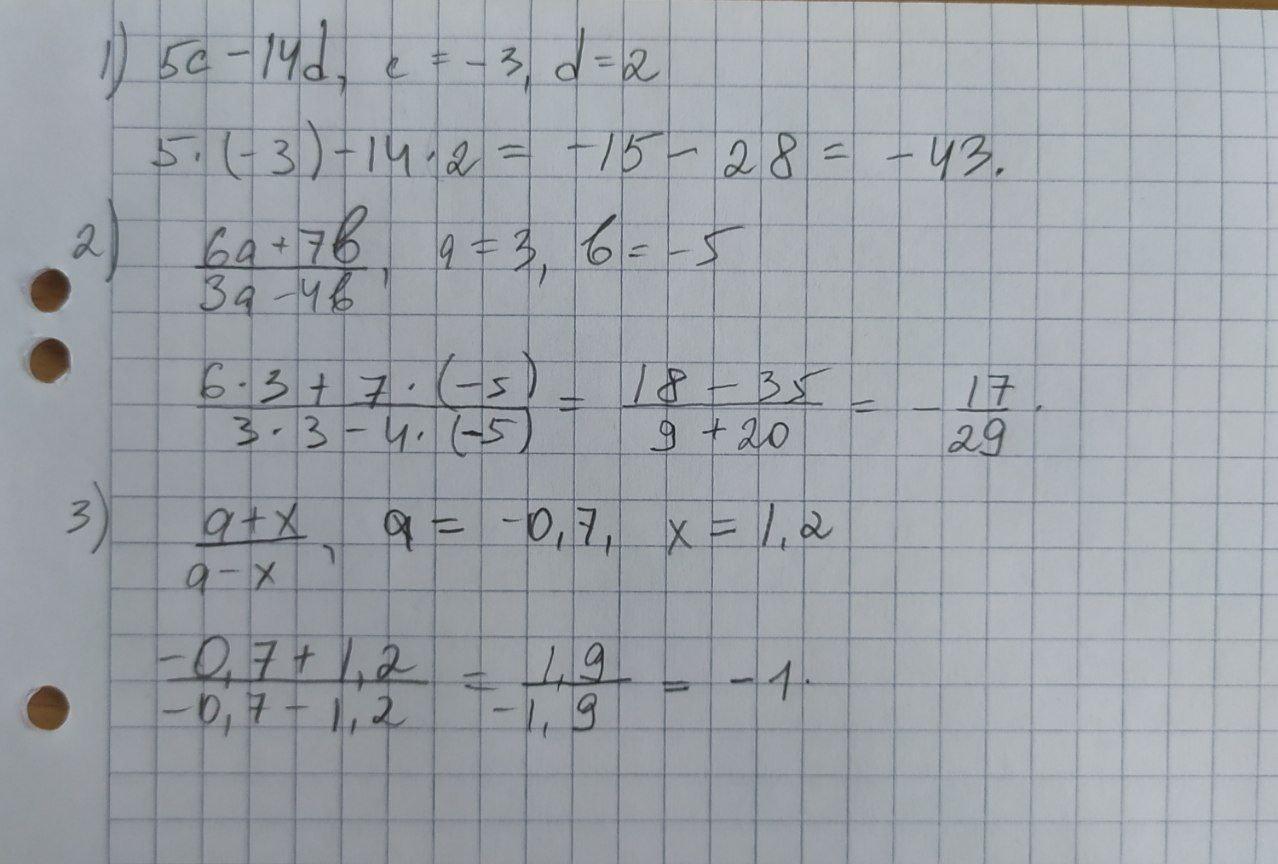 1) 5c - 14d, c = -3, d = 2
5·(-3) - 14·2 = -15 - 28 = -43.
2) (6a + 7b)/(3a - 4b), a = 3, b = -5
(6·3 + 7·(-5))/(3·3 - 4·(-5)) = (18 - 35)/(9 + 20) = -17/29.
3) (a + x)/(a - x), a = -0,7, x = 1,2
(-0,7 + 1,2)/(-0,7 - 1,2) = 1,9/-1,9 = -1.